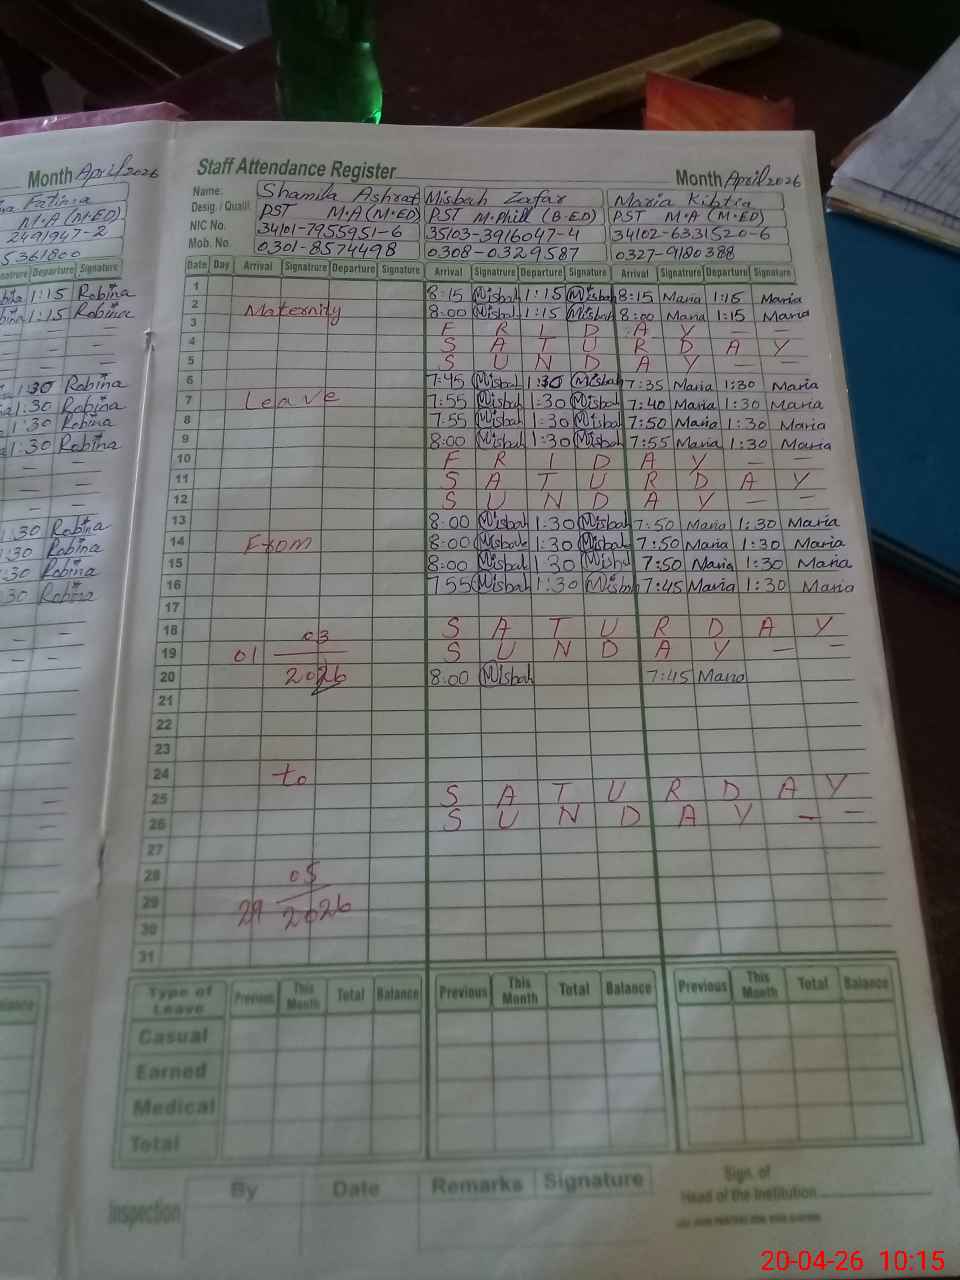 Month April 2026
Fatima
M.A (M.ED)
2491947-2
5361800
Departure Signature
1:15 Robina
1:15 Robina
1:30 Robina
1:30 Robina
1:30 Robina
1:30 Robina
1:30 Robina
:30 Robina
:30 Robina
30 Robina
Staff Attendance Register Month April 2026
Name: Shamila Ashraf Misbah Zafar Maria Kibtia
Desig. / Quali: PST M.A (M.ED) PST M.Phill (B.ED) PST M.A (M.ED)
NIC No. 34101-7955951-6 35103-3916047-4 34102-6331520-6
Mob. No. 0301-8574498 0308-0329587 0327-9180388
Date Day Arrival Signatrure Departure Signature Arrival Signatrure Departure Signature Arrival Signatrure Departure Signature
1 8:15 Misbah 1:15 Misbah 8:15 Maria 1:15 Maria
2 Maternity 8:00 Misbah 1:15 Misbah 8:00 Maria 1:15 Maria
3 F R I D A Y — —
4 S A T U R D A Y
5 S U N D A Y — —
6 7:45 Misbah 1:30 Misbah 7:35 Maria 1:30 Maria
7 Leave 7:55 Misbah 1:30 Misbah 7:40 Maria 1:30 Maria
8 7:55 Misbah 1:30 Misbah 7:50 Maria 1:30 Maria
9 8:00 Misbah 1:30 Misbah 7:55 Maria 1:30 Maria
10 F R I D A Y — —
11 S A T U R D A Y
12 S U N D A Y — —
13 8:00 Misbah 1:30 Misbah 7:50 Maria 1:30 Maria
14 From 8:00 Misbah 1:30 Misbah 7:50 Maria 1:30 Maria
15 8:00 Misbah 1:30 Misbah 7:50 Maria 1:30 Maria
16 755 Misbah 1:30 Misbah 7:45 Maria 1:30 Maria
17
18 03 S A T U R D A Y
19 01 S U N D A Y — —
20 2026 8:00 Misbah 7:45 Maria
21
22
23
24 to
25 S A T U R D A Y
26 S U N D A Y — —
27
28 05
29 29 2026
30
31
Type of Leave Previous This Month Total Balance Previous This Month Total Balance Previous This Month Total Balance
Casual
Earned
Medical
Total
Inspection By Date Remarks Signature
Sign. of
Head of the Institution
20-04-26 10:15